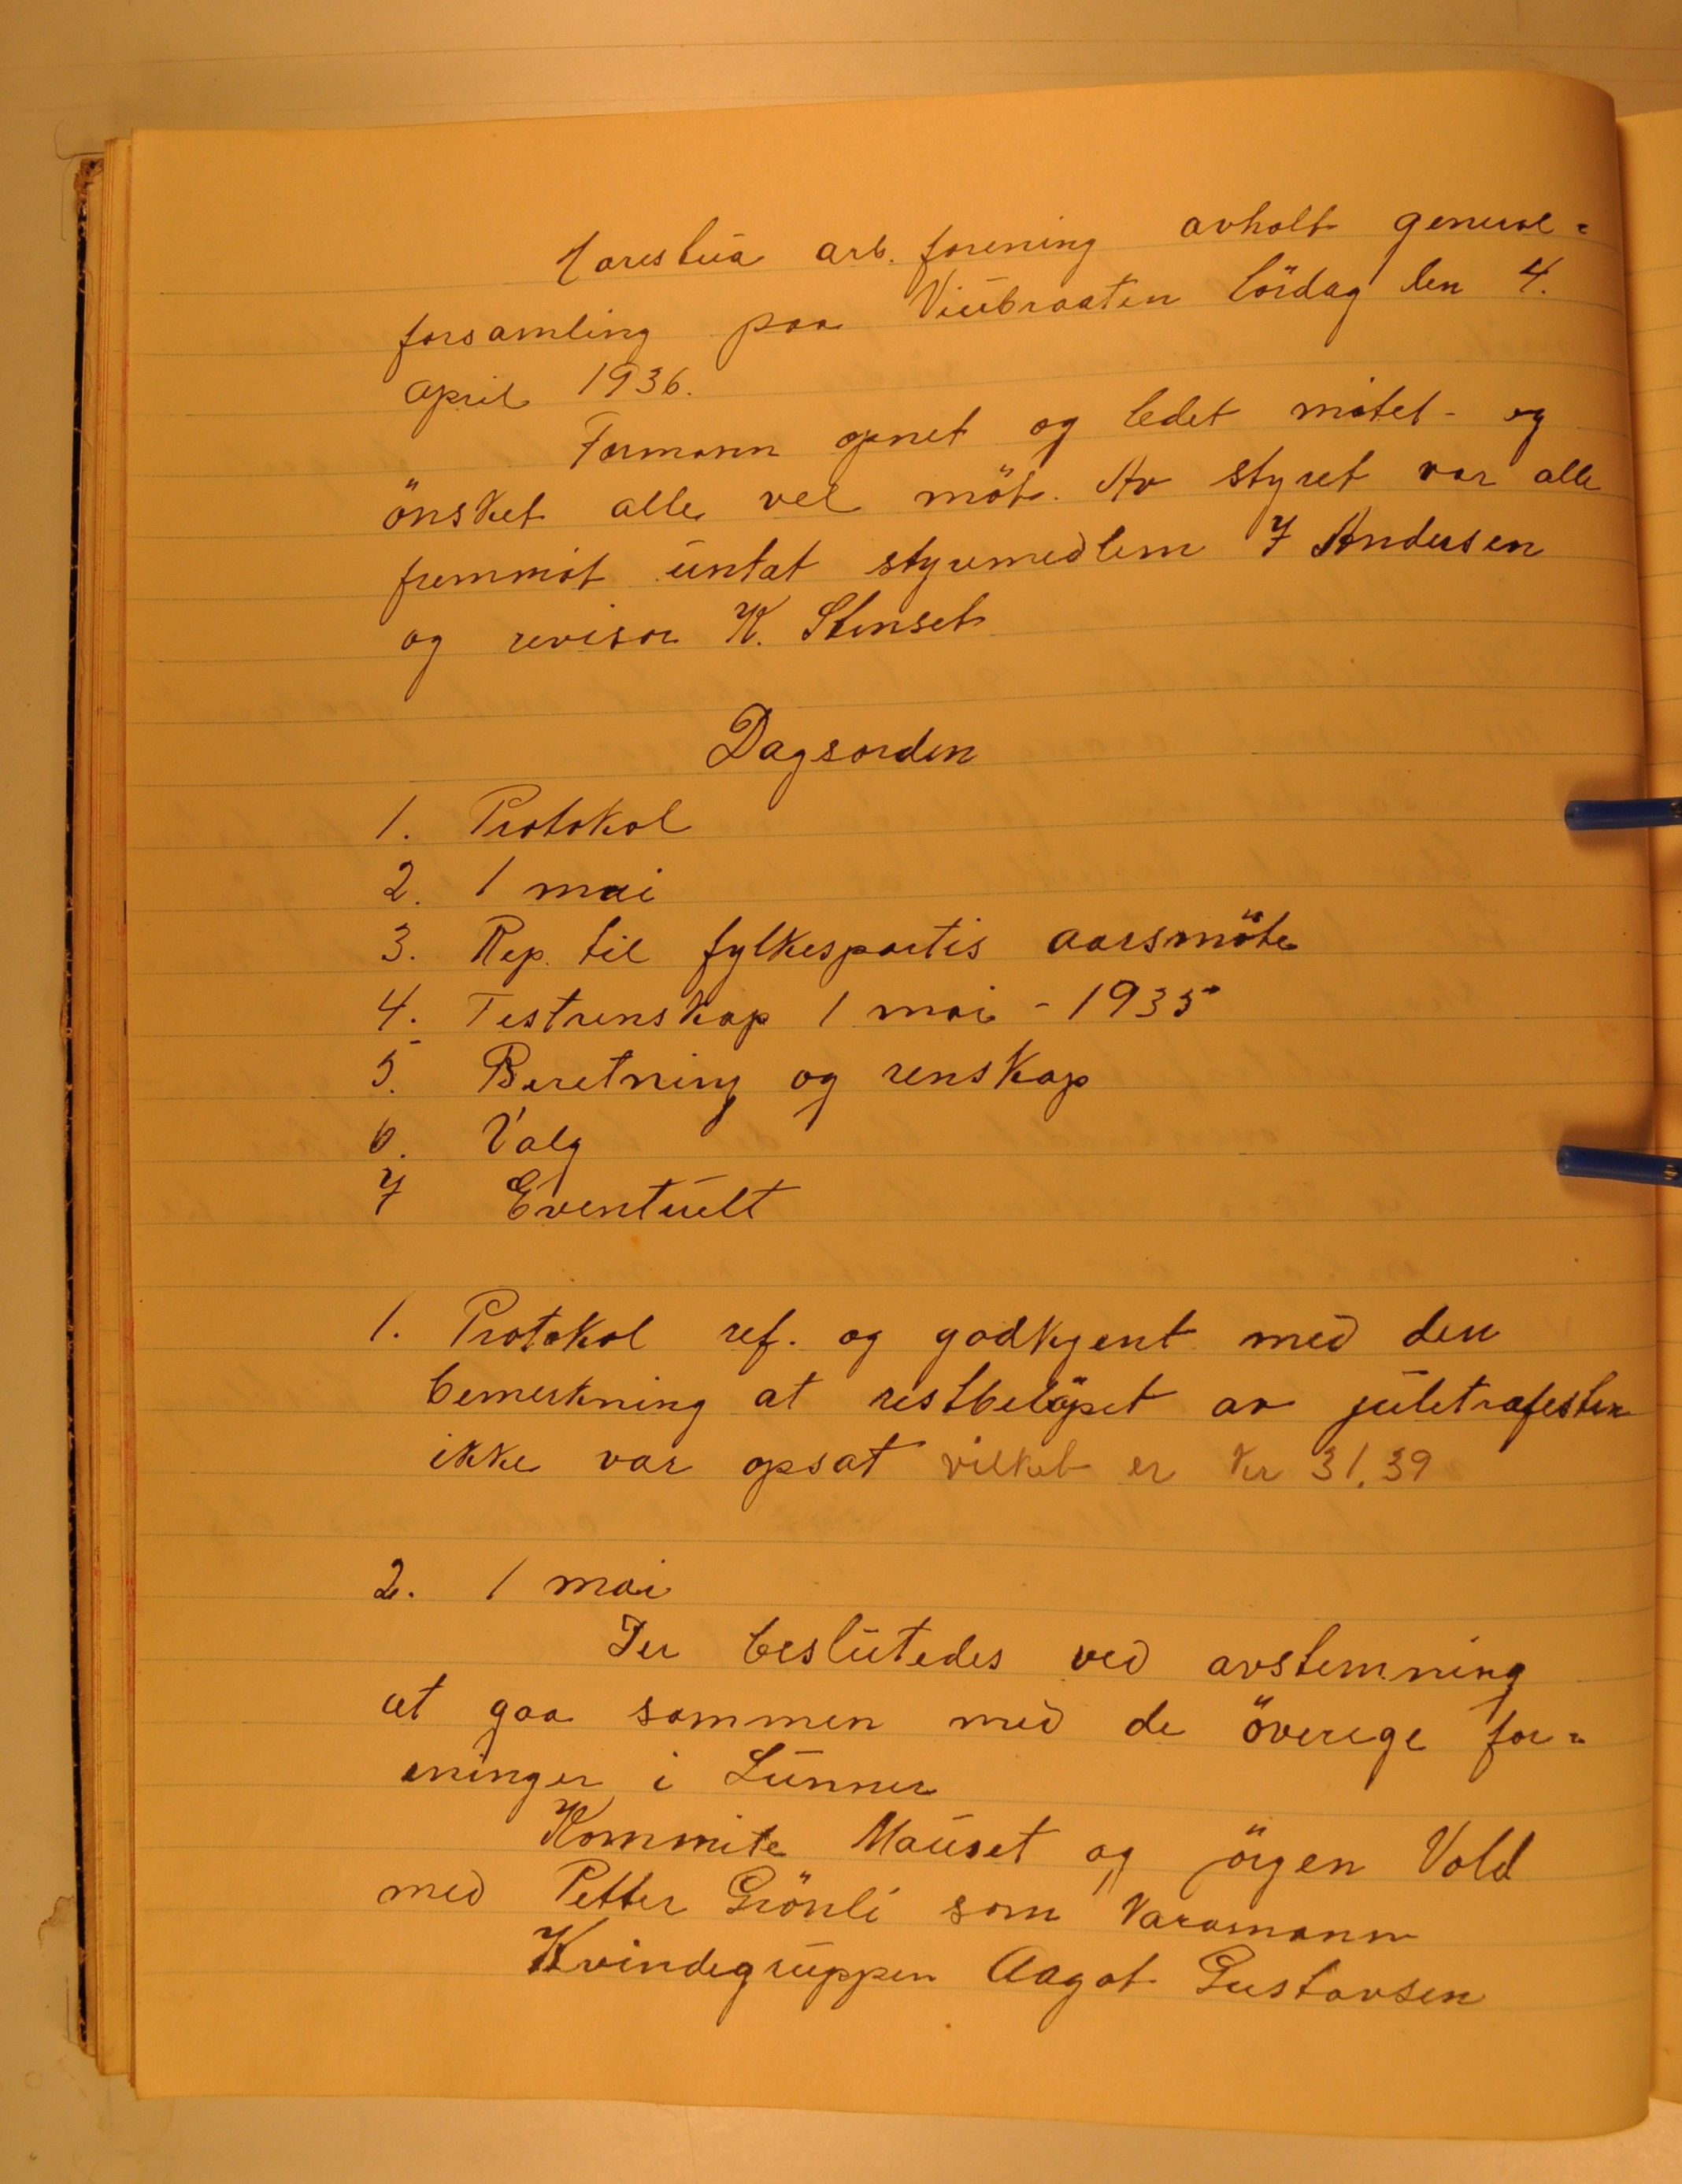 Harestua arb. forening avholt general=
forsamling paa Viubraaten lördag den 4.
april 1936.
Formann opnet og ledet mötet - og
önsket alle vel möt. Av styret var alle
fremmöt untat styremedlem J Andersen
og revisor K. Stenset
Dagsorden
1. Protokol
2. 1 mai
3. Rep. til fylkespartis aarsmöte
4. Festrenskap 1 mai - 1935
5. Beretning og renskap
6. Valg
7 Eventuelt
1. Protokol ref. og godkjent med den
bemerkning at restbelöpet av juletrafesten
ikke var opsat vilket er kr 31,39
2. 1 mai
Der beslutedes ved avstemning
at gaa sammen med de överige for=
eninger i Lunner
Kommite Mauset og jörgen Vold
med Petter Grönli som Varamann
Kvindegruppen Aagot Gustavsen